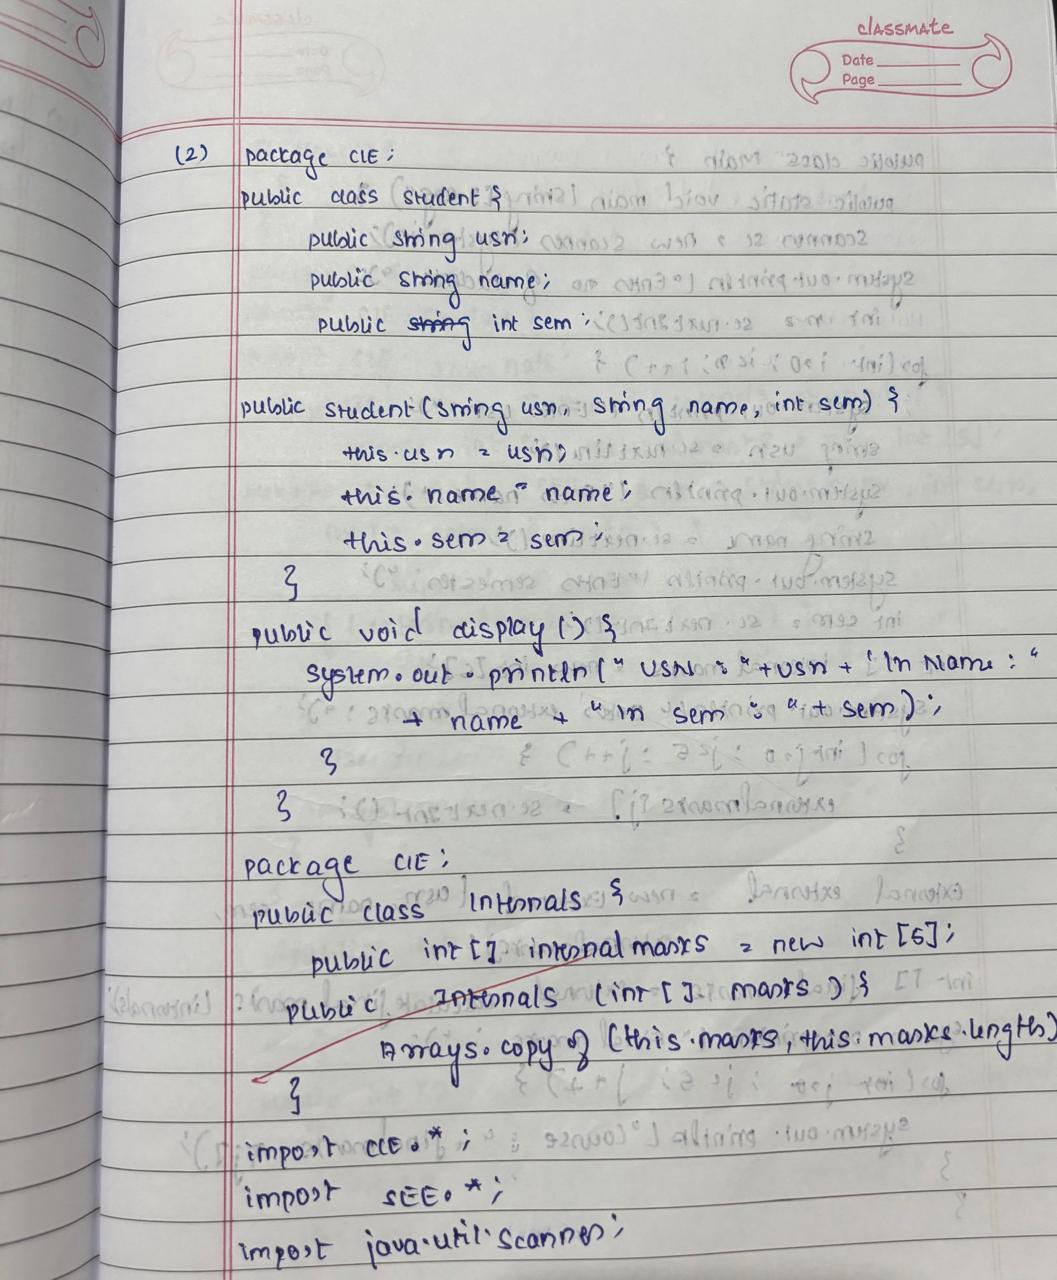 classmate
Date
Page
(2) package CIE;
public class student {
public string usn;
public string name;
public string int sem;
public student (string usn, string name, int sem) {
this.usn = usn;
this.name = name;
this.sem = sem;
}
public void display () {
system.out.println (" USN : " + usn + " \n Name : "
+ name + " \n sem : " + sem);
}
}
package CIE;
public class Internals {
public int [] internal marks = new int [5];
public Internals (int [] marks) {
Arrays.copy of (this.marks, this.marks.length)
}
import CIE.*;
import SEE.*;
import java.util.Scanner;